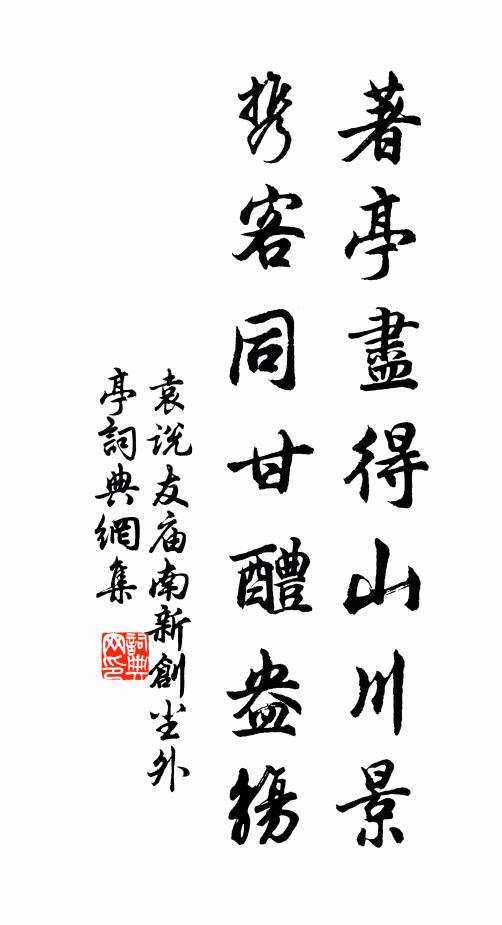 著亭盡得山川景
携客同甘醴盎觴
袁说友庙南新創尘外
亭詞典網集
詞典
网印